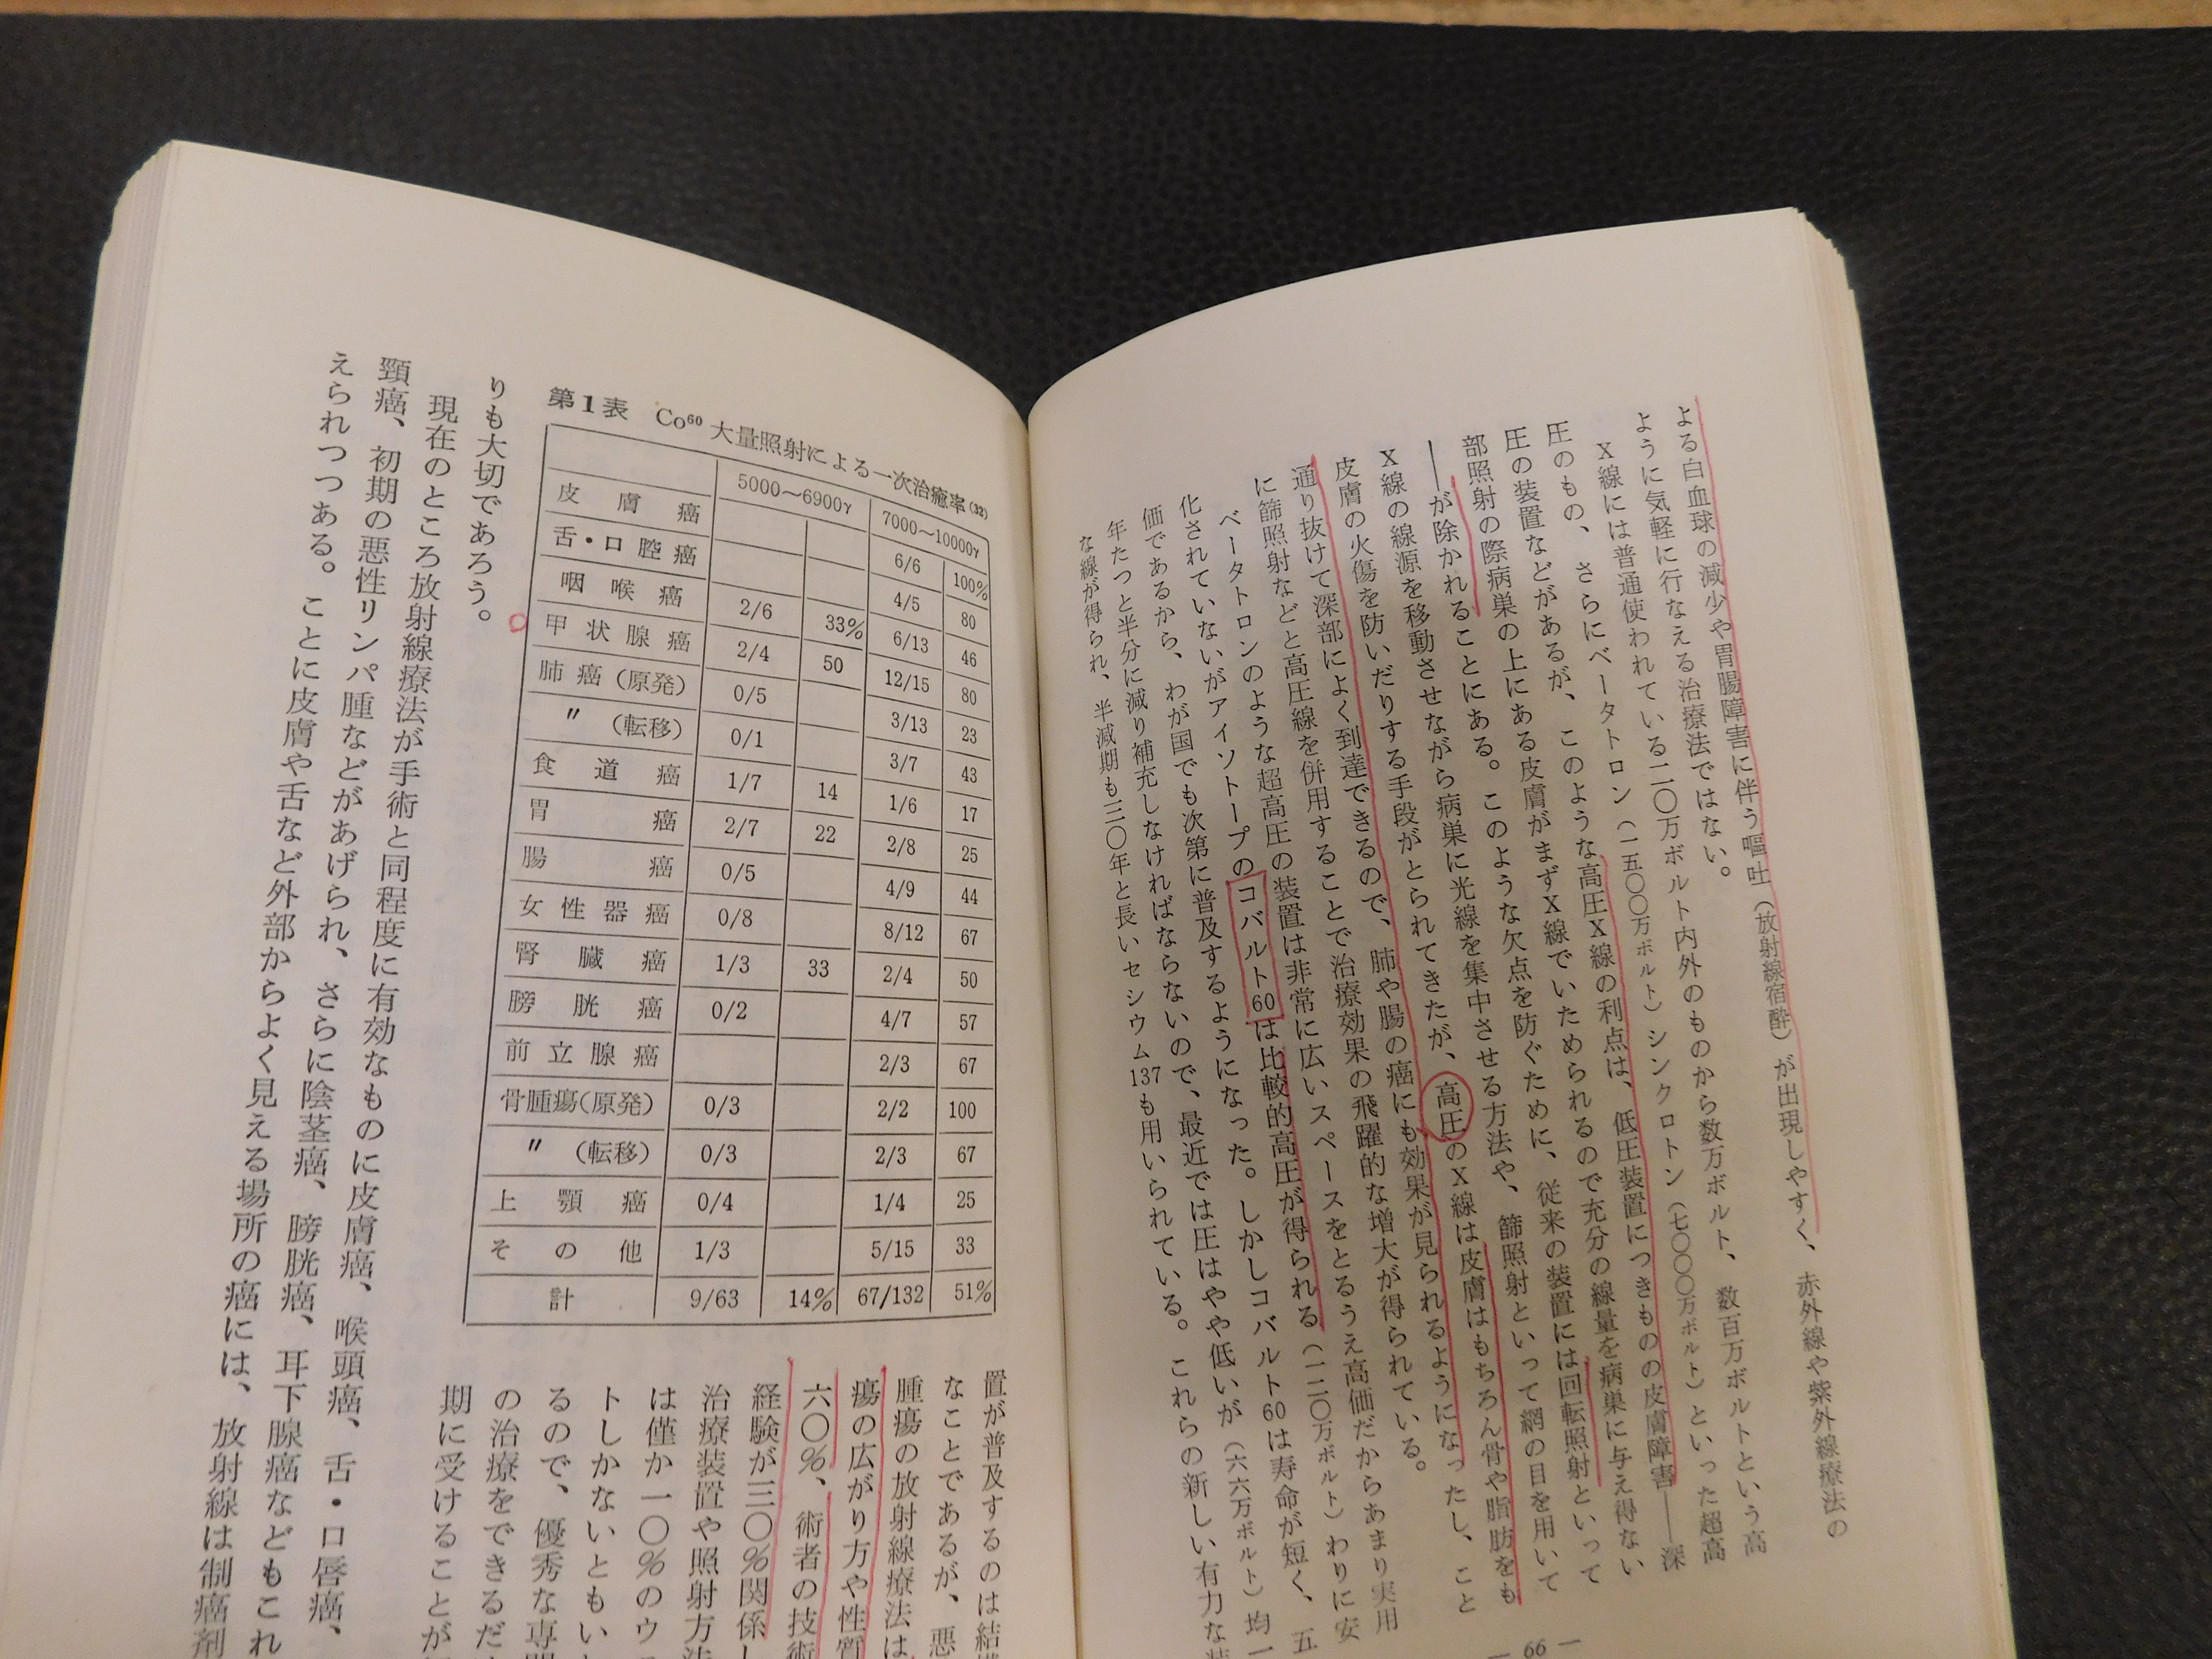 よる白血球の減少や胃腸障害に伴う嘔吐（放射線宿酔）が出現しやすく、赤外線や紫外線療法の
ように気軽に行なえる治療法ではない。
X線には普通使われている二〇万ボルト内外のものから数万ボルト、数百万ボルトという高
圧のもの、さらにベータトロン（一五〇〇万ボルト）シンクロトン（七〇〇〇万ボルト）といった超高
圧の装置などがあるが、このような高圧X線の利点は、低圧装置につきものの皮膚障害――深
部照射の際病巣の上にある皮膚がまずX線でいためられるので充分の線量を病巣に与え得ない
――が除かれることにある。このような欠点を防ぐために、従来の装置には回転照射といって
X線の線源を移動させながら病巣に光線を集中させる方法や、篩照射といって網の目を用いて
皮膚の火傷を防いだりする手段がとられてきたが、高圧のX線は皮膚はもちろん骨や脂肪をも
通り抜けて深部によく到達できるので、肺や腸の癌にも効果が見られるようになったし、こと
に篩照射などと高圧線を併用することで治療効果の飛躍的な増大が得られている。
ベータトロンのような超高圧の装置は非常に広いスペースをとるうえ高価だからあまり実用
化されていないがアイソトープのコバルト60は比較的高圧が得られる（一二〇万ボルト）わりに安
価であるから、わが国でも次第に普及するようになった。しかしコバルト60は寿命が短く、五
年たつと半分に減り補充しなければならないので、最近では圧はやや低いが（六六万ボルト）均一
な線が得られ、半減期も三〇年と長いセシウム137も用いられている。これらの新しい有力な装
— 66 —
第1表 Co⁶⁰大量照射による一次治癒率(32)
5000～6900γ 7000～10000γ
皮膚癌 6/6 100%
舌・口腔癌 4/5 80
咽喉癌 2/6 33% 6/13 46
甲状腺癌 2/4 50 12/15 80
肺癌（原発） 0/5 3/13 23
〃（転移） 0/1 3/7 43
食道癌 1/7 14 1/6 17
胃癌 2/7 22 2/8 25
腸癌 0/5 4/9 44
女性器癌 0/8 8/12 67
腎臓癌 1/3 33 2/4 50
膀胱癌 0/2 4/7 57
前立腺癌 2/3 67
骨腫瘍（原発） 0/3 2/2 100
〃（転移） 0/3 2/3 67
上顎癌 0/4 1/4 25
その他 1/3 5/15 33
計 9/63 14% 67/132 51%
置が普及するのは結構
なことであるが、悪
腫瘍の放射線療法は
瘍の広がり方や性質
六〇％、術者の技術
経験が三〇％関係し
治療装置や照射方法
は僅か一〇％のウ
トしかないともい
るので、優秀な専門
の治療をできるだ
期に受けることが
りも大切であろう。
現在のところ放射線療法が手術と同程度に有効なものに皮膚癌、喉頭癌、舌・口唇癌、
頸癌、初期の悪性リンパ腫などがあげられ、さらに陰茎癌、膀胱癌、耳下腺癌などもこれ
えられつつある。ことに皮膚や舌など外部からよく見える場所の癌には、放射線は制癌剤